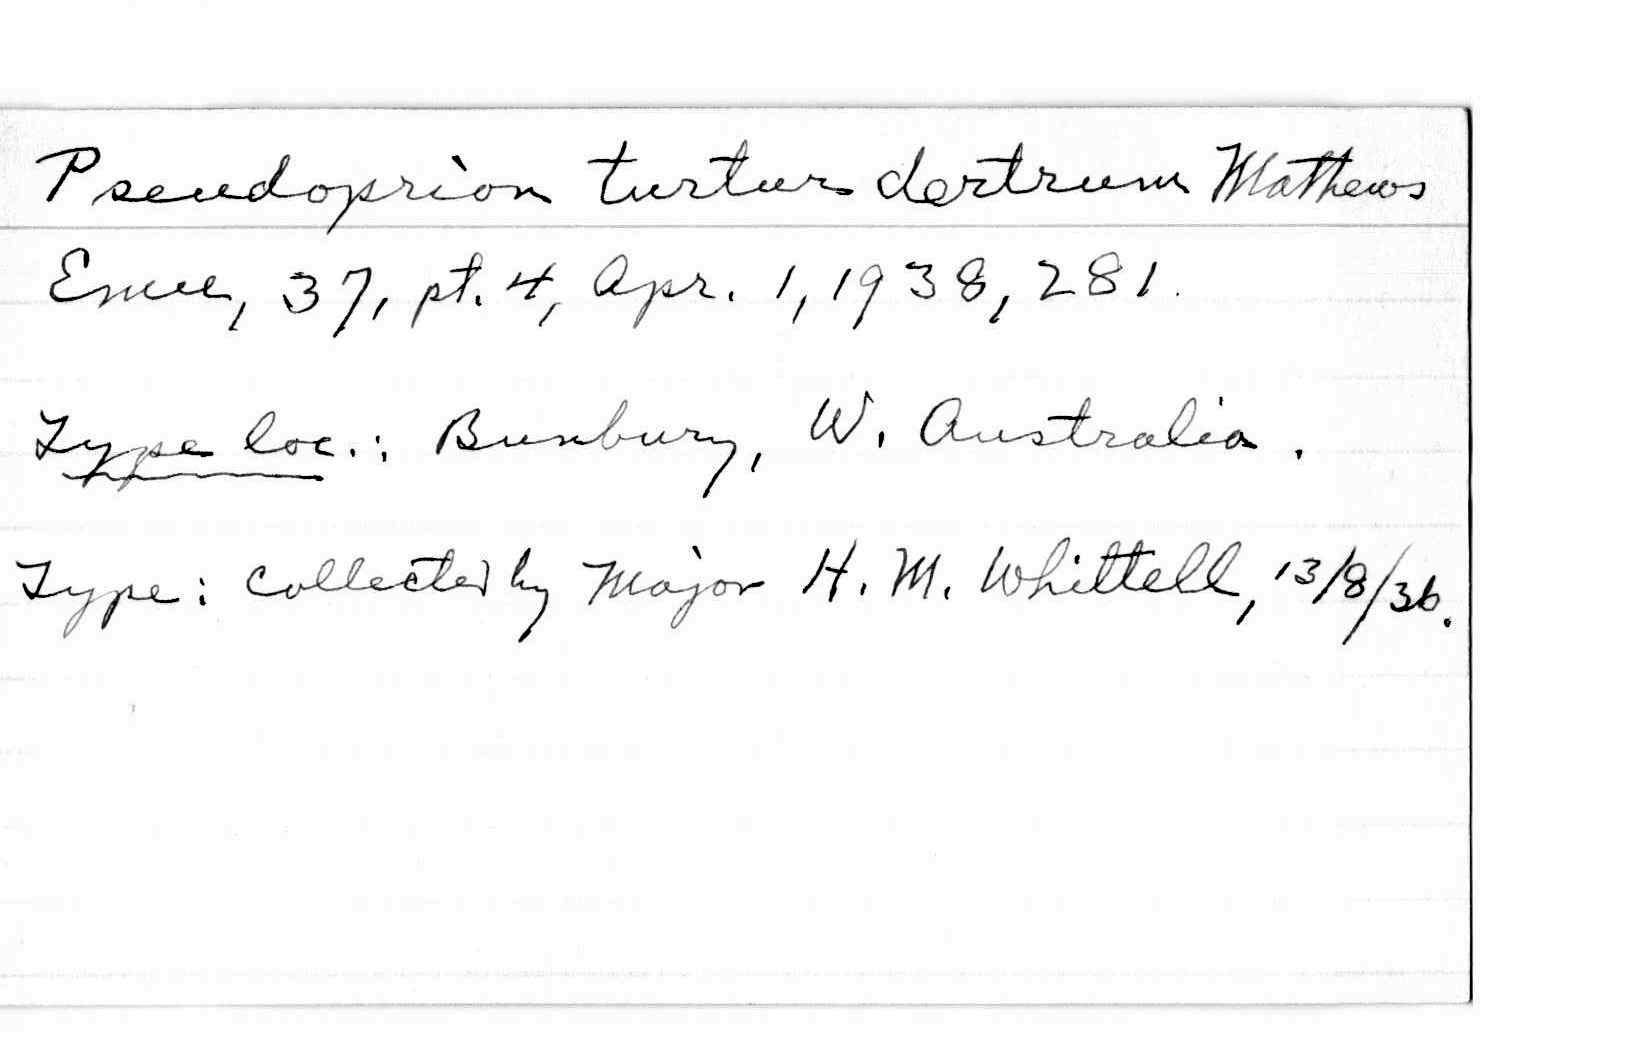 Pseudoprion turtur dertrum Mathews
Emu, 37, pt. 4, Apr. 1, 1938, 281.
Type loc.: Bunbury, W. Australia.
Type: collected by Major H. M. Whittell, 13/8/36.